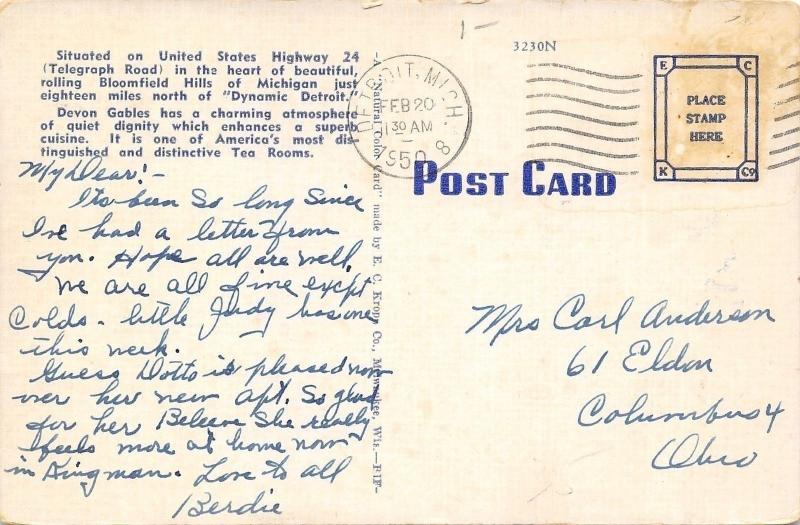 1-
3230N
Situated on United States Highway 24
(Telegraph Road) in the heart of beautiful,
rolling Bloomfield Hills of Michigan just
eighteen miles north of "Dynamic Detroit."
Devon Gables has a charming atmosphere
of quiet dignity which enhances a superb
cuisine. It is one of America's most dis-
tinguished and distinctive Tea Rooms.
My Dear!-
Its been so long since
I've had a letter from
you. Hope all are well.
We are all fine except
Colds. little Judy has one
this week.
Guess Dotto is pleased now
over her new apt. So glad
for her Beleave She really
feels more at home now
in Kingman. Love to all
Berdie
-A "Natural Color Card" made by E. C. Kropp Co., Milwaukee, Wis.-F1F-
DETROIT, MICH.
FEB 20
130 AM
1950
8
POST CARD
E C
PLACE
STAMP
HERE
K C9
Mrs Carl Anderson
61 Eldon
Columbus 4
Ohio